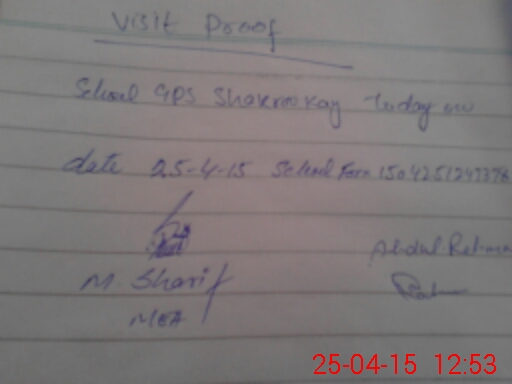 Visit Proof
School GPS Shakrookay Today on
date 25-4-15 School Form
M. Sharif
MEA
Abdul Rehman
25-04-15 12:53